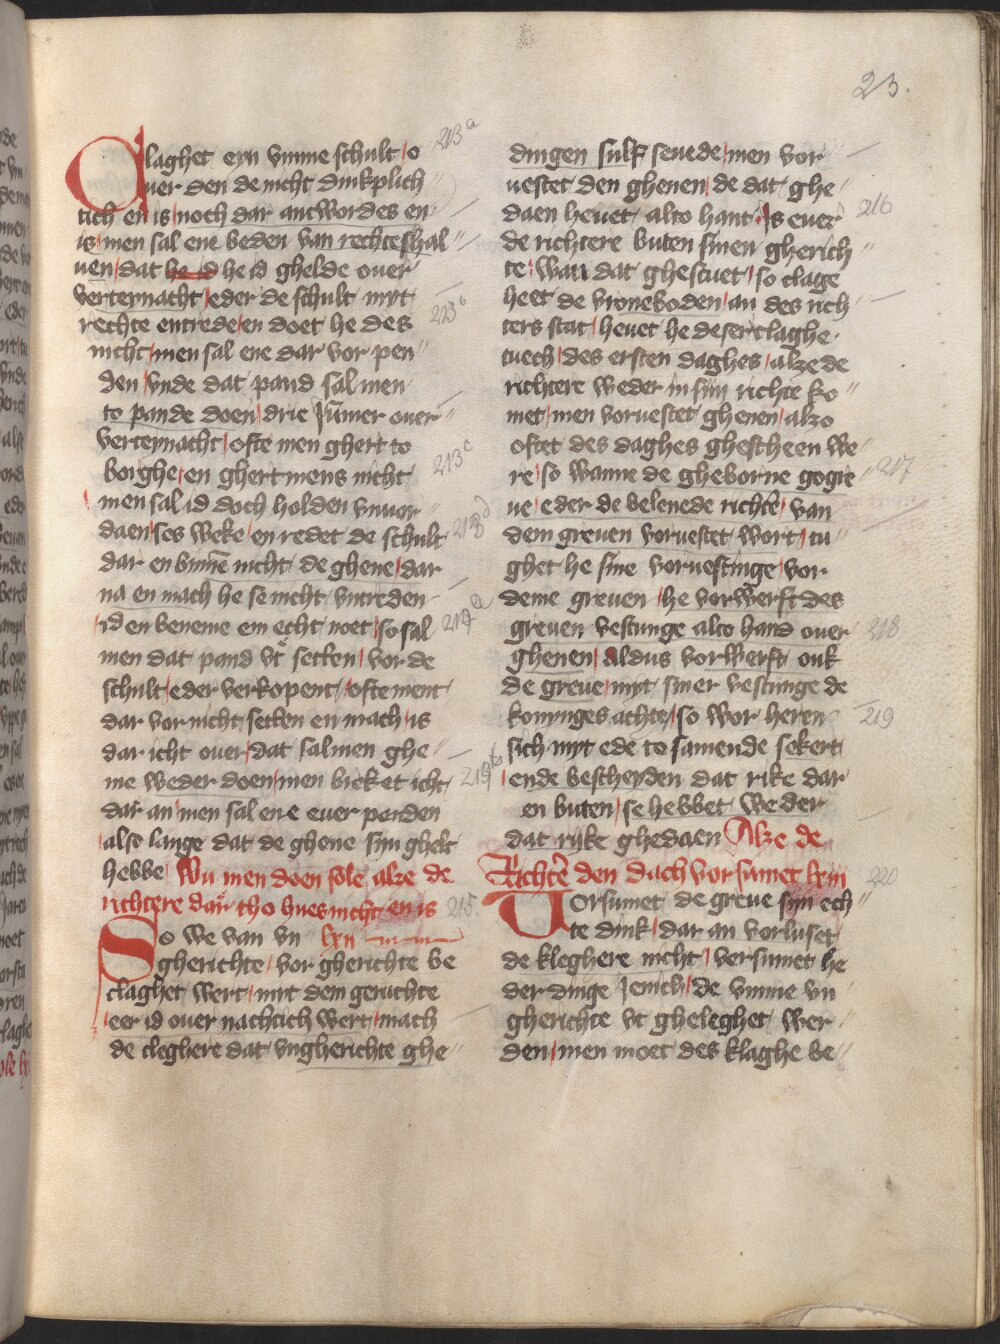 23.
Claghet eyn vmme schult o
uer den de nicht dinkplich
tich en is noch dar antwordes en
is men sal ene beden van rechteshal
uen dat he id ghelde ouer
verteynacht eder de schult myt
rechte entrede en doet he des
nicht men sal ene dar vor pen
den vnde dat pand sal men
to pande doen drie Jum̄er ouer
verteynacht ofte men ghert to
borghe en ghert mens nicht
men sal id doch holden vnuor
daen ses weke en redet de schult
dar en binnē nicht de ghene dar
na en mach he se nicht vntreden
id en beneme em echt noet so sal
men dat pand vt setten vor de
schult eder verkopent ofte ment
dar vor nicht setten en mach is
dar icht ouer dat sal men ghe
me weder doen men breket icht
dar an men sal ene euer panden
alse lange dat de ghene sijn ghelt
hebbe Wu men doen sole alze de
richtere dar tho hues nicht en is
So we van vn lxii
gherichte vor gherichte be
claghet wert myt dem geruchte
eer id ouer nachtich wert mach
de cleghere dat vngherichte ghe
213a
213b
213c
213d
214a
214b
215.
dingen sulf seuede men vor
uestet den ghenen de dat ghe
daen heuet alto hant Is euer
de richtere buten sinen gherich
te wan dat ghescuet so clage
heet de vroneboden an des rich
ters stat heuet he deser claghe
tuech des ersten daghes alze de
richtere weder in sijn richte ko
met men voruestet ghenen alzo
oftet des daghes ghescheen we
re so wanne de gheborne gogre
ue eder de belenede richtē van
dem greuen voruestet wort tu
ghet he sine voruestinge vor
deme greuen he vorwerft des
greuen vestinge alto hand ouer
ghenen Aldus vorwerft ouk
de greue myt siner vestinge de
koninges achte so wor heren
sich myt ede to samende sekert
ende bescheyden dat rike dar
en buten se hebbet weder
dat ryke ghedaen Alze de
Richtē den dach vorsumet lxiii
Uorsumet de greue sijn ech
te dink dar an vorluset
de kleghere nicht versumet he
der dinge Jenich de vmme vn
gherichte vt gheleghet wer
den men moet des klaghe be
216
217
218
219
220